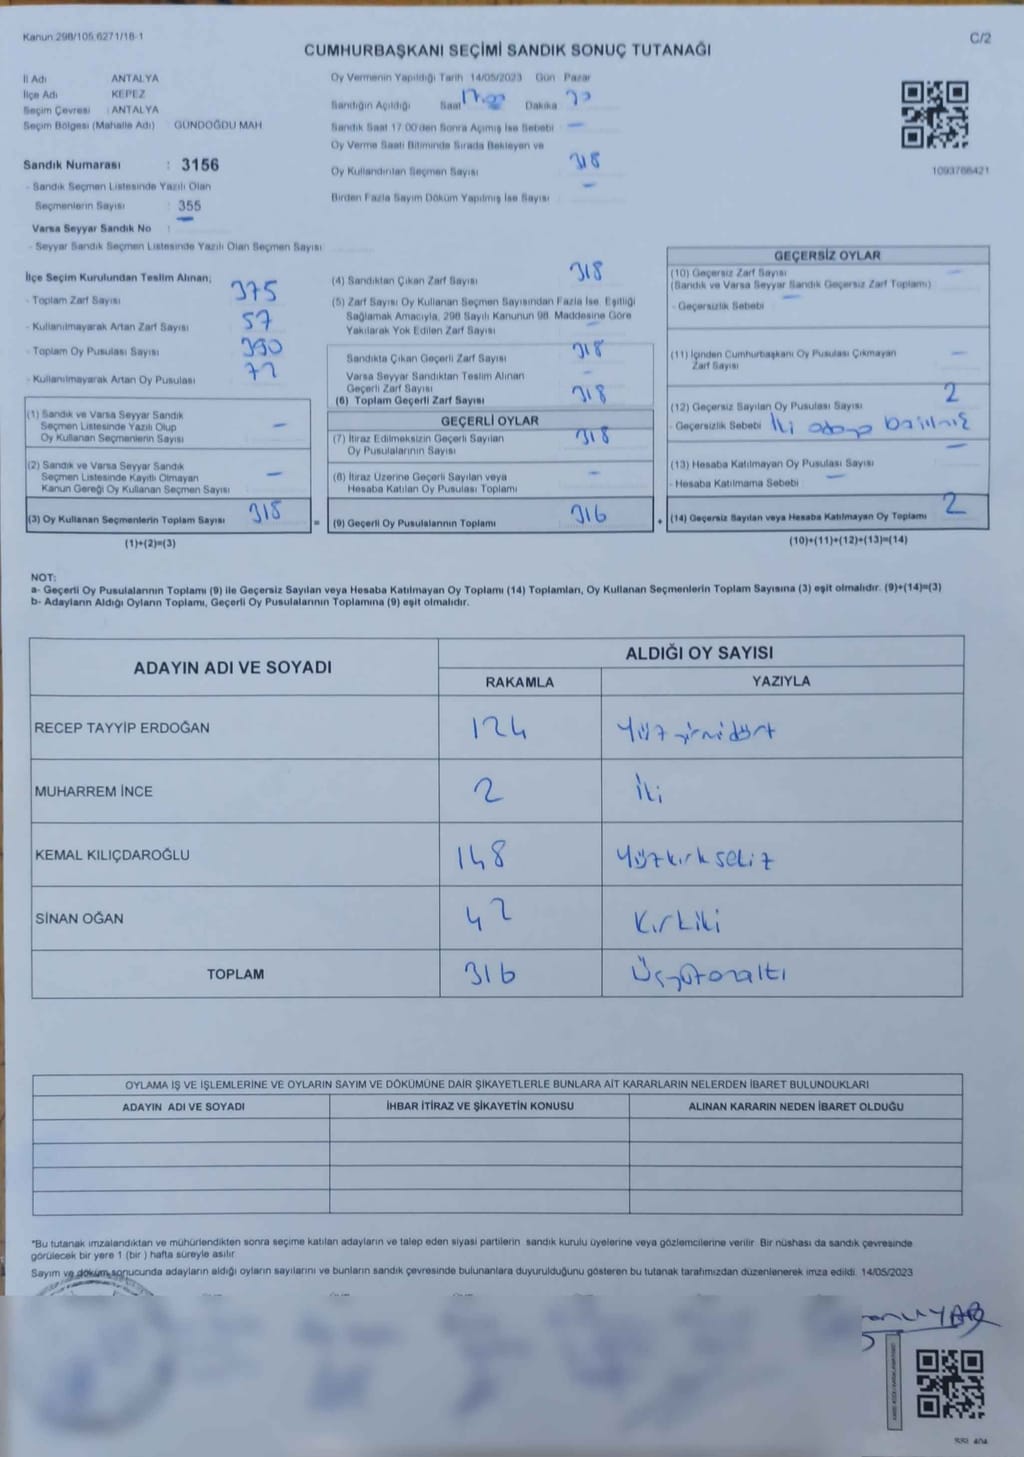 Kanun:298/105,6271/18-1
C/2
CUMHURBAŞKANI SEÇİMİ SANDIK SONUÇ TUTANAĞI
İl Adı ANTALYA
İlçe Adı KEPEZ
Seçim Çevresi : ANTALYA
Seçim Bölgesi (Mahalle Adı) GÜNDOĞDU MAH
Sandık Numarası : 3156
- Sandık Seçmen Listesinde Yazılı Olan
Seçmenlerin Sayısı : 355
Varsa Seyyar Sandık No :
- Seyyar Sandık Seçmen Listesinde Yazılı Olan Seçmen Sayısı
Oy Vermenin Yapıldığı Tarih 14/05/2023 Gün Pazar
Sandığın Açıldığı Saat 17.00 Dakika
Sandık Saat 17.00'den Sonra Açılmış İse Sebebi —
Oy Verme Saati Bitiminde Sırada Bekleyen ve
Oy Kullandırılan Seçmen Sayısı 318
Birden Fazla Sayım Döküm Yapılmış İse Sayısı —
1093766421
İlçe Seçim Kurulundan Teslim Alınan;
- Toplam Zarf Sayısı 375
- Kullanılmayarak Artan Zarf Sayısı 57
- Toplam Oy Pusulası Sayısı 390
- Kullanılmayarak Artan Oy Pusulası 72
(1) Sandık ve Varsa Seyyar Sandık
Seçmen Listesinde Yazılı Olup
Oy Kullanan Seçmenlerin Sayısı —
(2) Sandık ve Varsa Seyyar Sandık
Seçmen Listesinde Kayıtlı Olmayan
Kanun Gereği Oy Kullanan Seçmen Sayısı —
(3) Oy Kullanan Seçmenlerin Toplam Sayısı 318
(1)+(2)=(3)
(4) Sandıktan Çıkan Zarf Sayısı 318
(5) Zarf Sayısı Oy Kullanan Seçmen Sayısından Fazla İse, Eşitliği
Sağlamak Amacıyla, 298 Sayılı Kanunun 98. Maddesine Göre
Yakılarak Yok Edilen Zarf Sayısı
Sandıkta Çıkan Geçerli Zarf Sayısı 318
Varsa Seyyar Sandıktan Teslim Alınan
Geçerli Zarf Sayısı —
(6) Toplam Geçerli Zarf Sayısı 318
GEÇERLİ OYLAR
(7) İtiraz Edilmeksizin Geçerli Sayılan
Oy Pusulalarının Sayısı 318
(8) İtiraz Üzerine Geçerli Sayılan veya
Hesaba Katılan Oy Pusulası Toplamı —
=
(9) Geçerli Oy Pusulalarının Toplamı 316
+
GEÇERSİZ OYLAR
(10) Geçersiz Zarf Sayısı —
(Sandık ve Varsa Seyyar Sandık Geçersiz Zarf Toplamı)
- Geçersizlik Sebebi —
(11) İçinden Cumhurbaşkanı Oy Pusulası Çıkmayan
Zarf Sayısı —
(12) Geçersiz Sayılan Oy Pusulası Sayısı 2
- Geçersizlik Sebebi İki adaya basılmış
(13) Hesaba Katılmayan Oy Pusulası Sayısı —
- Hesaba Katılmama Sebebi —
(14) Geçersiz Sayılan veya Hesaba Katılmayan Oy Toplamı 2
(10)+(11)+(12)+(13)=(14)
NOT:
a- Geçerli Oy Pusulalarının Toplamı (9) ile Geçersiz Sayılan veya Hesaba Katılmayan Oy Toplamı (14) Toplamları, Oy Kullanan Seçmenlerin Toplam Sayısına (3) eşit olmalıdır. (9)+(14)=(3)
b- Adayların Aldığı Oyların Toplamı, Geçerli Oy Pusulalarının Toplamına (9) eşit olmalıdır.
ADAYIN ADI VE SOYADI
ALDIĞI OY SAYISI
RAKAMLA YAZIYLA
RECEP TAYYİP ERDOĞAN 124 Yüz yirmi dört
MUHARREM İNCE 2 İki
KEMAL KILIÇDAROĞLU 148 Yüz kırk sekiz
SİNAN OĞAN 42 Kırkiki
TOPLAM 316 Üçyüzonaltı
OYLAMA İŞ VE İŞLEMLERİNE VE OYLARIN SAYIM VE DÖKÜMÜNE DAİR ŞİKAYETLERLE BUNLARA AİT KARARLARIN NELERDEN İBARET BULUNDUKLARI
ADAYIN ADI VE SOYADI İHBAR İTİRAZ VE ŞİKAYETİN KONUSU ALINAN KARARIN NEDEN İBARET OLDUĞU
"Bu tutanak imzalandıktan ve mühürlendikten sonra seçime katılan adayların ve talep eden siyasi partilerin sandık kurulu üyelerine veya gözlemcilerine verilir. Bir nüshası da sandık çevresinde
görülecek bir yere 1 (bir ) hafta süreyle asılır.
Sayım ve döküm sonucunda adayların aldığı oyların sayılarını ve bunların sandık çevresinde bulunanlara duyurulduğunu gösteren bu tutanak tarafımızdan düzenlenerek imza edildi. 14/05/2023